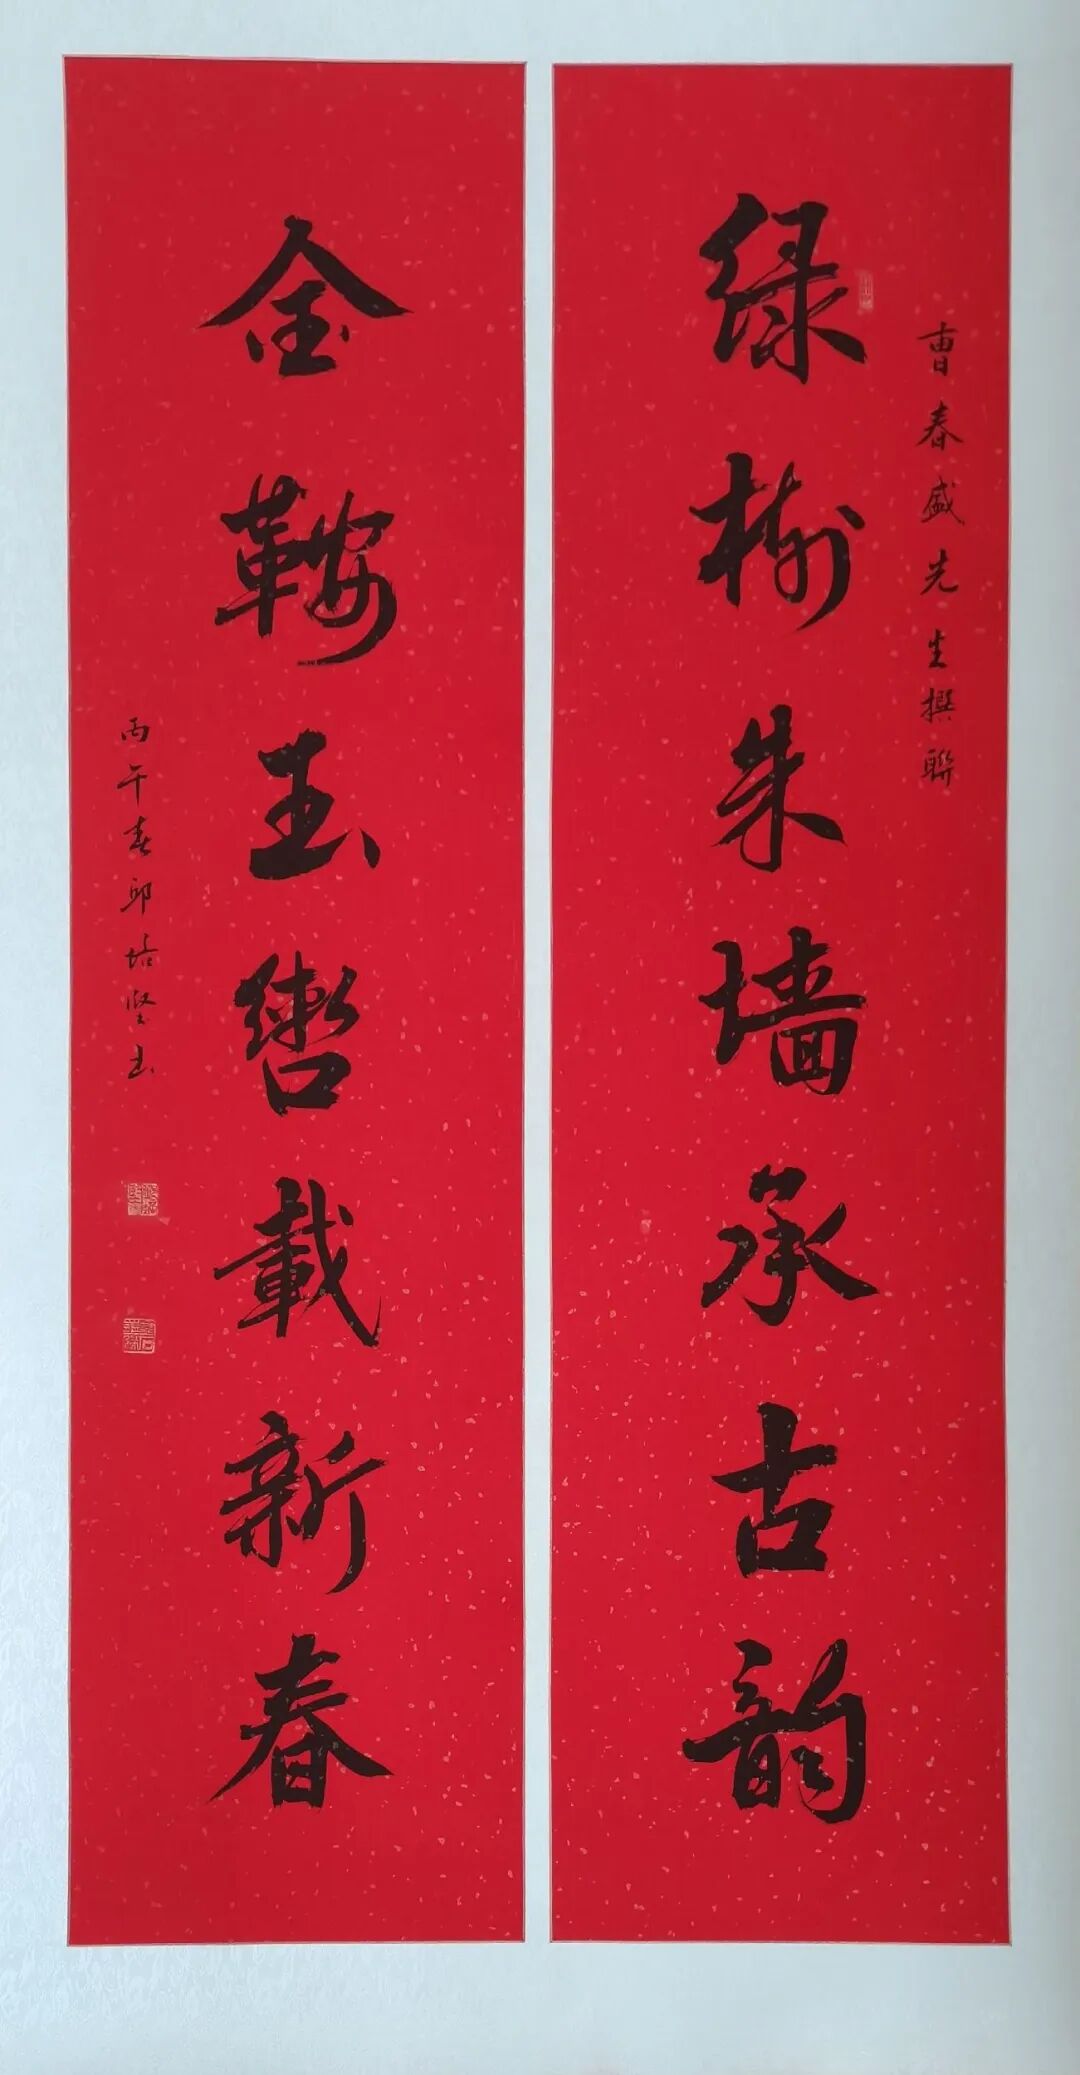 曹春盛先生撰联
绿树朱墙承古韵
金鞍玉辔载新春
丙午春邱培坚书